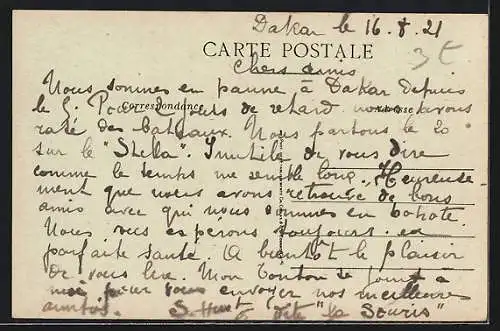 Dakar le 16.8.21
CARTE POSTALE
3€
Chers amis
Nous sommes en panne à Dakar depuis
Correspondance
Adresse
le 6. Pour 2 jours de retard nous avons
raté des bateaux. Nous partons le 20
sur le "Stella". Inutile de vous dire
comme le temps me semble long. Heureuse-
ment que nous avons retrouvé de bons
amis avec qui nous sommes en popote.
Nous vous espérons toujours en
parfaite santé. A bientôt le plaisir
de vous lire. Mon tonton se joint à
moi pour vous envoyer nos meilleures
amitiés. dite "la Souris"